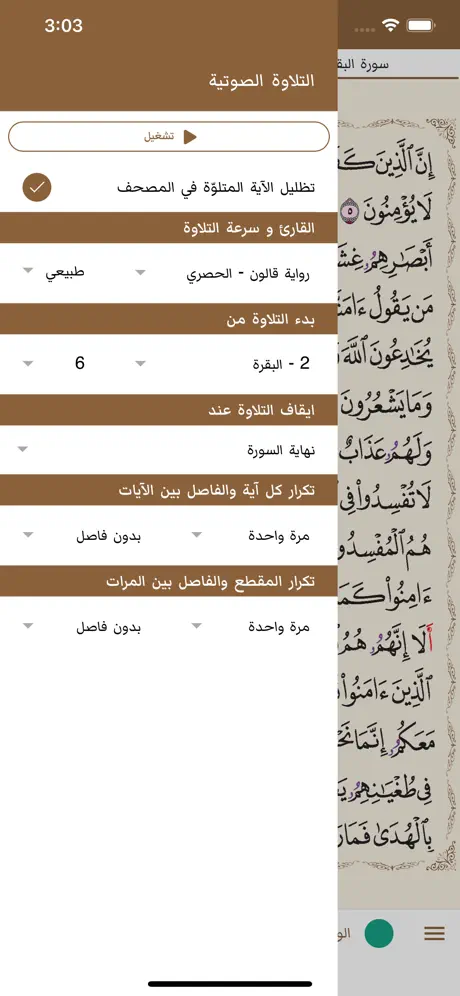 3:03
التلاوة الصوتية
تشغيل
تظليل الآية المتلوّة في المصحف
القارئ و سرعة التلاوة
رواية قالون - الحصري
طبيعي
بدء التلاوة من
2 - البقرة
6
ايقاف التلاوة عند
نهاية السورة
تكرار كل آية والفاصل بين الآيات
مرة واحدة
بدون فاصل
تكرار المقطع والفاصل بين المرات
مرة واحدة
بدون فاصل
سورة
إِنَّ ٱلَّذِينَ
لَا يُؤْمِنُونَ ٥
أَبْصَٰرِهِمُۥ
مَن يَقُولُ
يُخَٰدِعُونَ ٱللَّهَ
وَمَا يَشْعُرُونَ
وَلَهُمُۥ عَذَابٌ
لَا تُفْسِدُوا۟ فِي
هُمُ
ءَامِنُوا۟
أَلَا إِنَّهُمُۥ هُمُ
ٱلَّذِينَ ءَامَنُوا۟
مَعَكُمُۥ إِنَّمَا
فِي طُغْيَٰنِهِمُۥ
بِٱلْهُدَىٰ